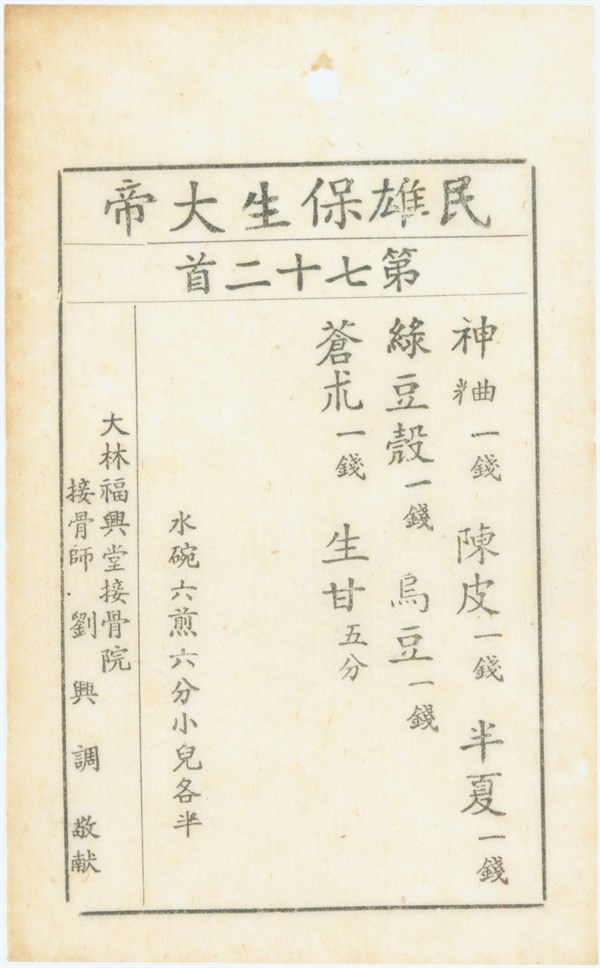 民雄保生大帝
第七十二首
神粬一錢 陳皮一錢 半夏一錢
綠豆殼一錢 烏豆一錢
蒼朮一錢 生甘五分
水碗六煎六分小兒各半
大林福興堂接骨院
接骨師 劉興調 敬献